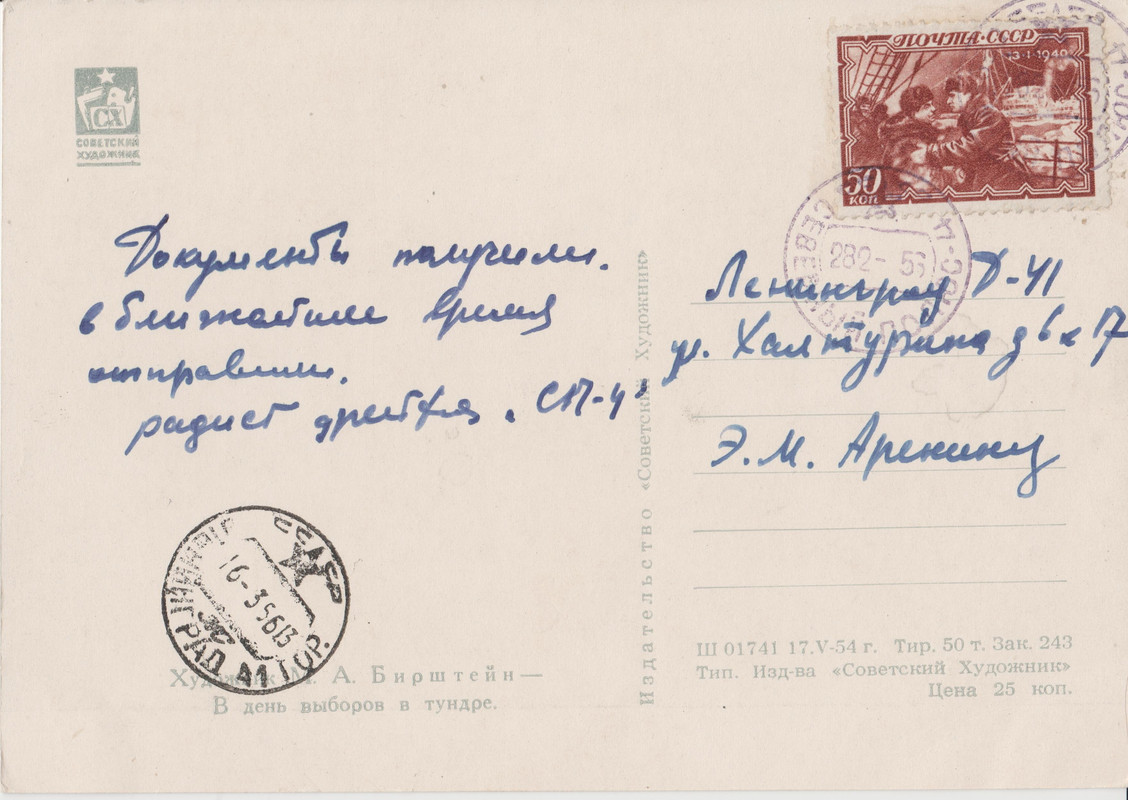 СХ
СОВЕТСКИЙ
ХУДОЖНИК
Документы получили.
в ближайшие время
отправим.
радист дрейфа „СП-4"
Художник М. А. Бирштейн—
В день выборов в тундре.
ЛЕНИНГРАД 41 ГОР.
16-3 56 13
Издательство «Советский Художник»
ПОЧТА·СССР
13·I·1940
50
КОП
282- 56
Ленинград Д-41
ул. Халтурина д 6 к 17
Э. М. Аренину
Ш 01741 17.V-54 г. Тир. 50 т. Зак. 243
Тип. Изд-ва «Советский Художник»
Цена 25 коп.